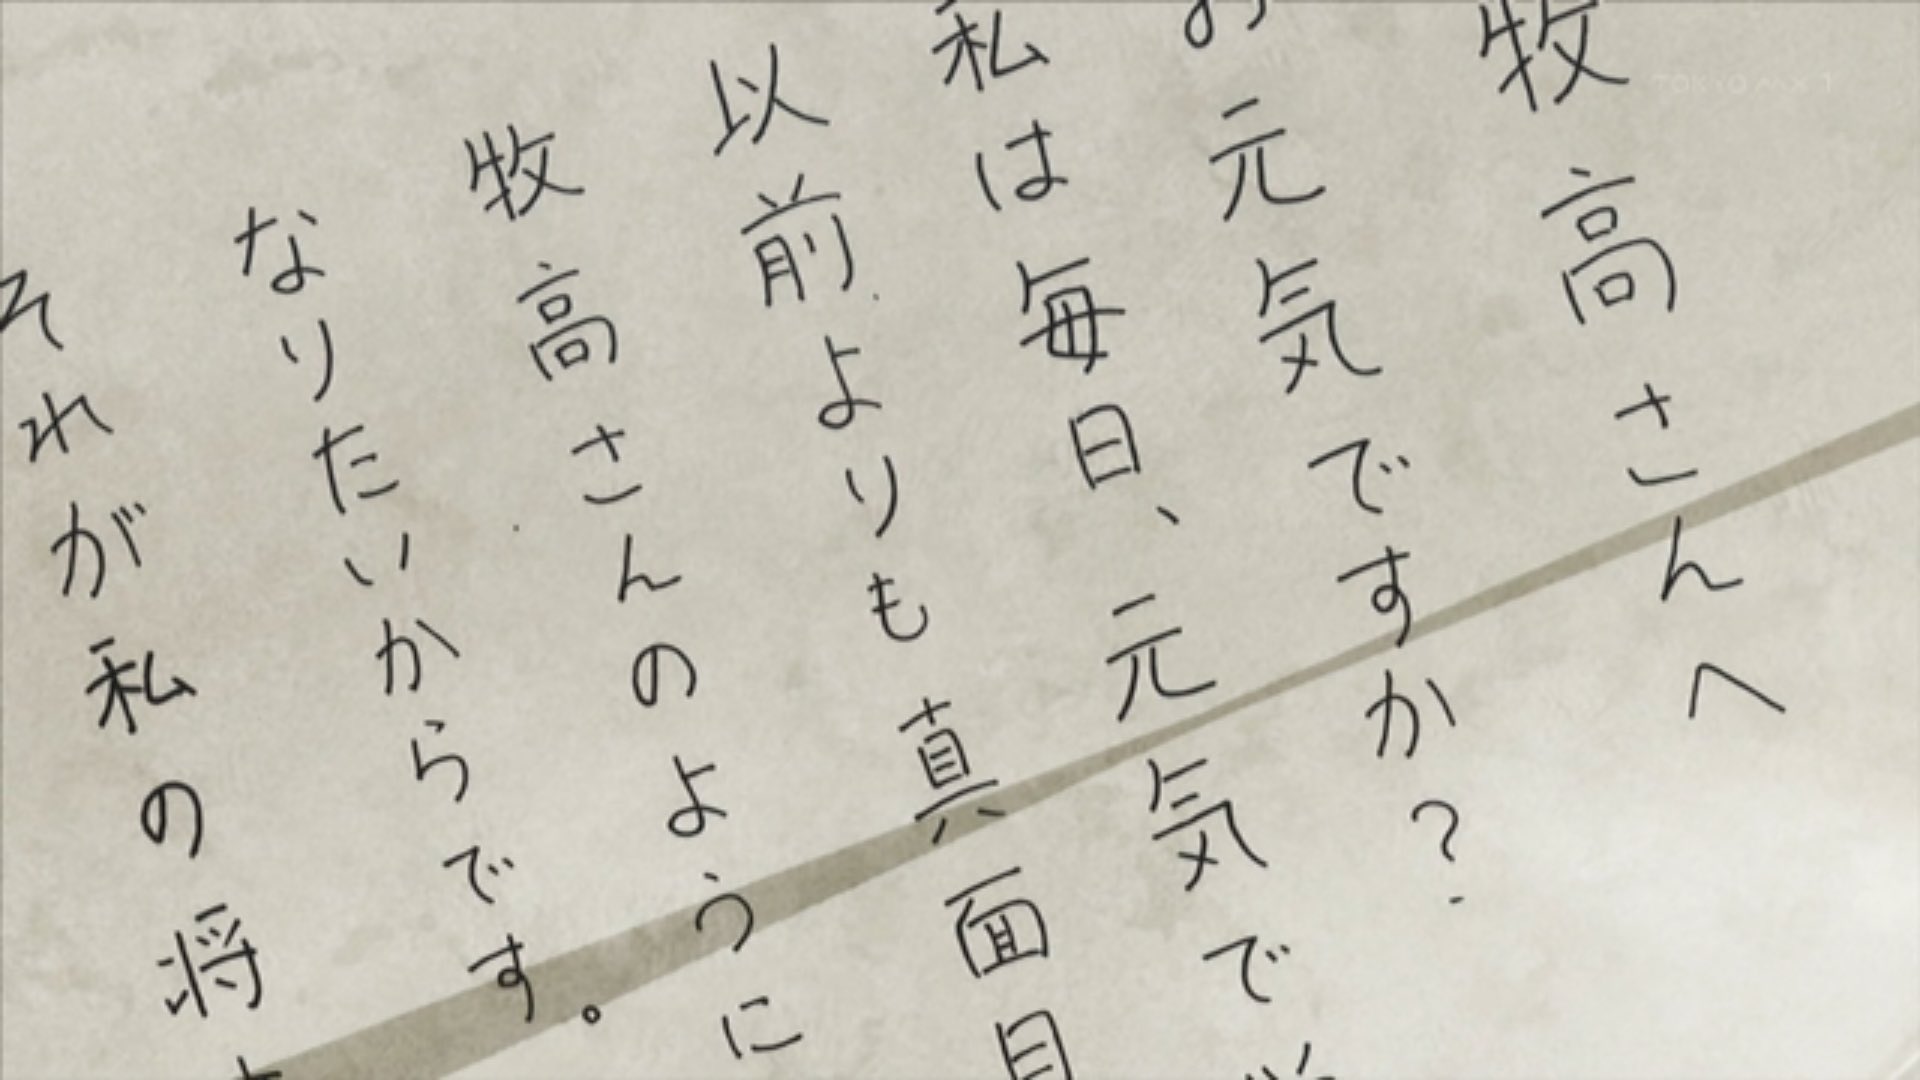 牧高さんへ
お元気ですか?
私は毎日、元気で
以前よりも真面目
牧高さんのように
なりたいからです。
それが私の将
TOKYO MX 1